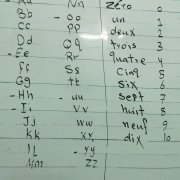 Nn zéro 0
Bb - Oo un 1
Cc PP deux 2
Dd Qq trois 3
- Ee Rr quatre 4
Ff Ss cinq 5
Gg tt six 6
- Hh - uu sept 7
- Ii Vv huit 8
Jj ww neuf 9
kk xx dix 10
Ll - yy
Mm ZZ